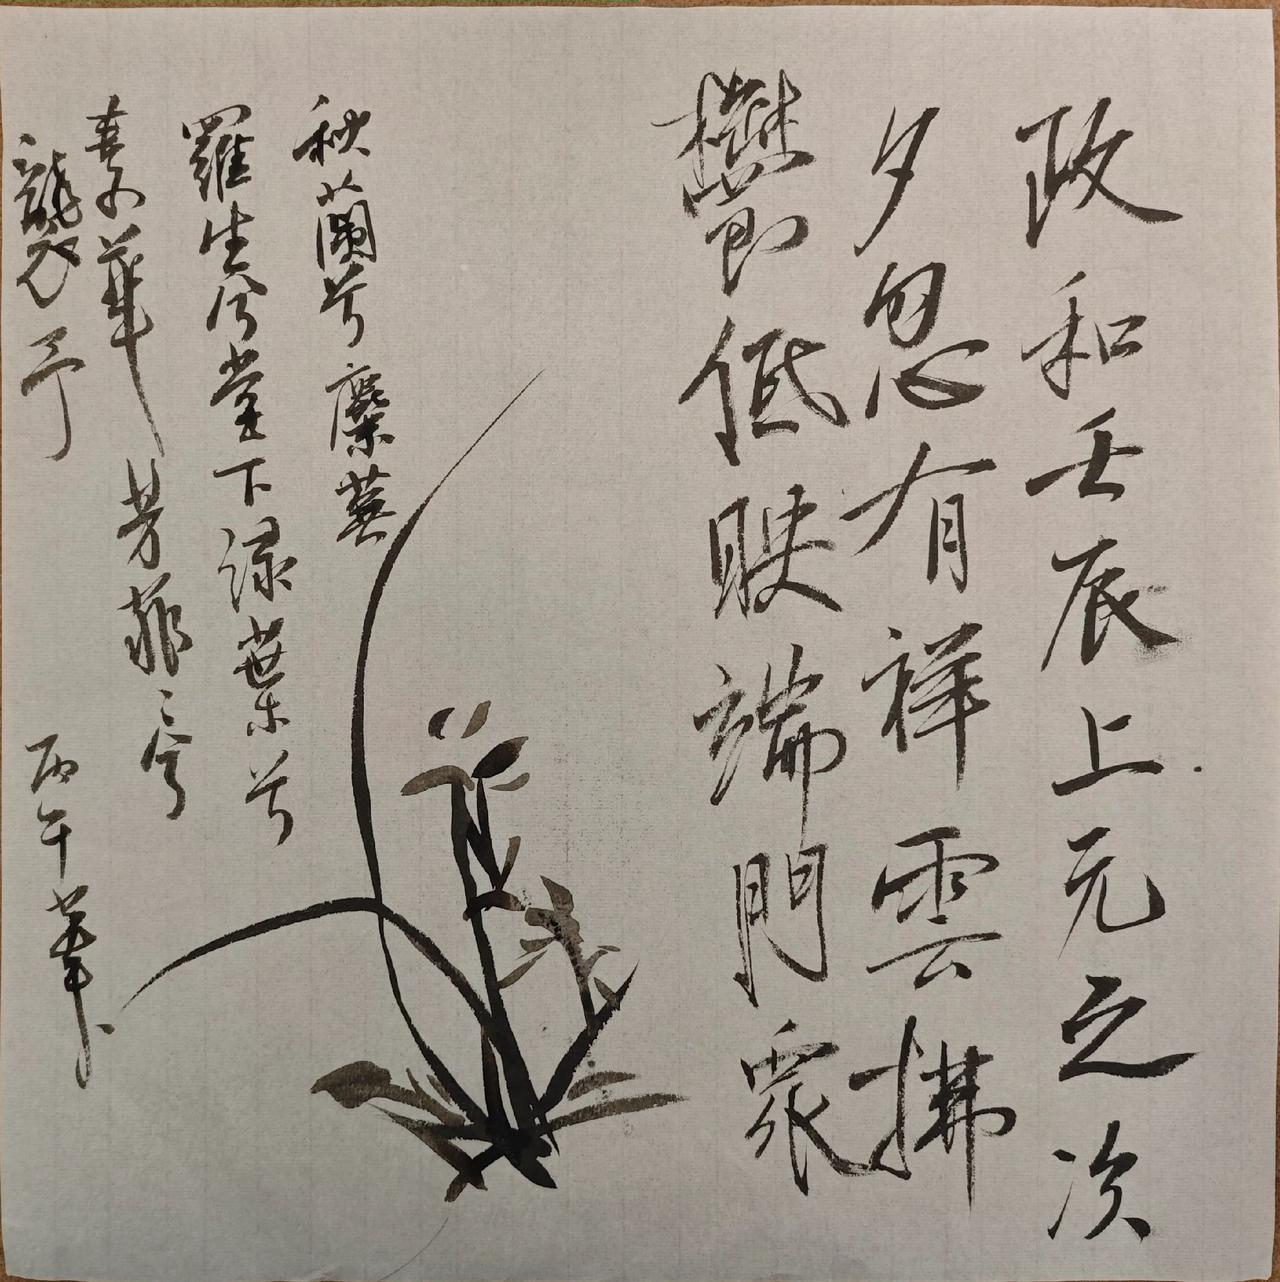 政和壬辰上元之次
夕忽有祥雲拂
鬱低映端門衆
秋蘭兮麋蕪
羅生兮堂下綠葉兮
素華芳菲〻兮
襲予
丙午華